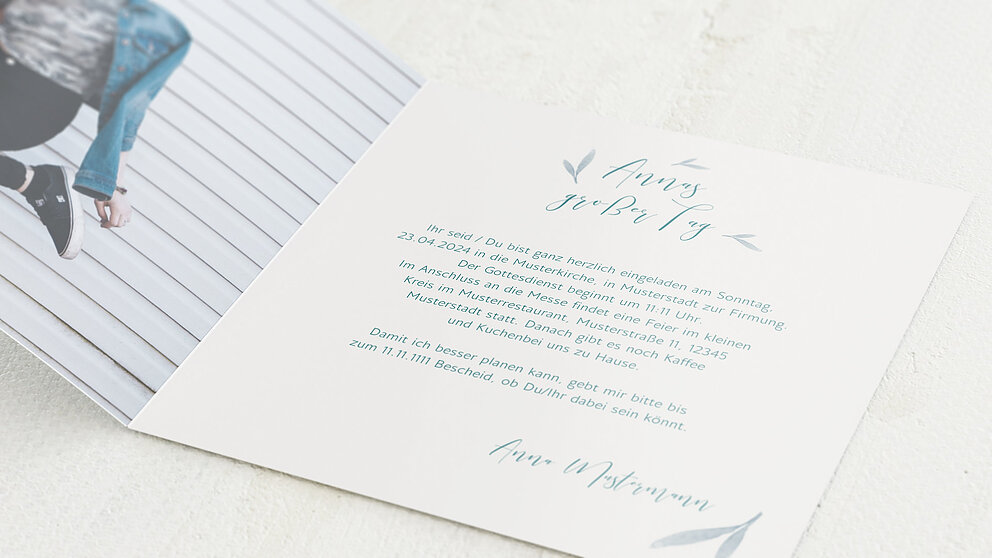 Annas
großer Tag
Ihr seid / Du bist ganz herzlich eingeladen am Sonntag,
23.04.2024 in die Musterkirche, in Musterstadt zur Firmung.
Der Gottesdienst beginnt um 11:11 Uhr.
Im Anschluss an die Messe findet eine Feier im kleinen
Kreis im Musterrestaurant, Musterstraße 11, 12345
Musterstadt statt. Danach gibt es noch Kaffee
und Kuchenbei uns zu Hause.
Damit ich besser planen kann, gebt mir bitte bis
zum 11.11.1111 Bescheid, ob Du/Ihr dabei sein könnt.
Anna Mustermann